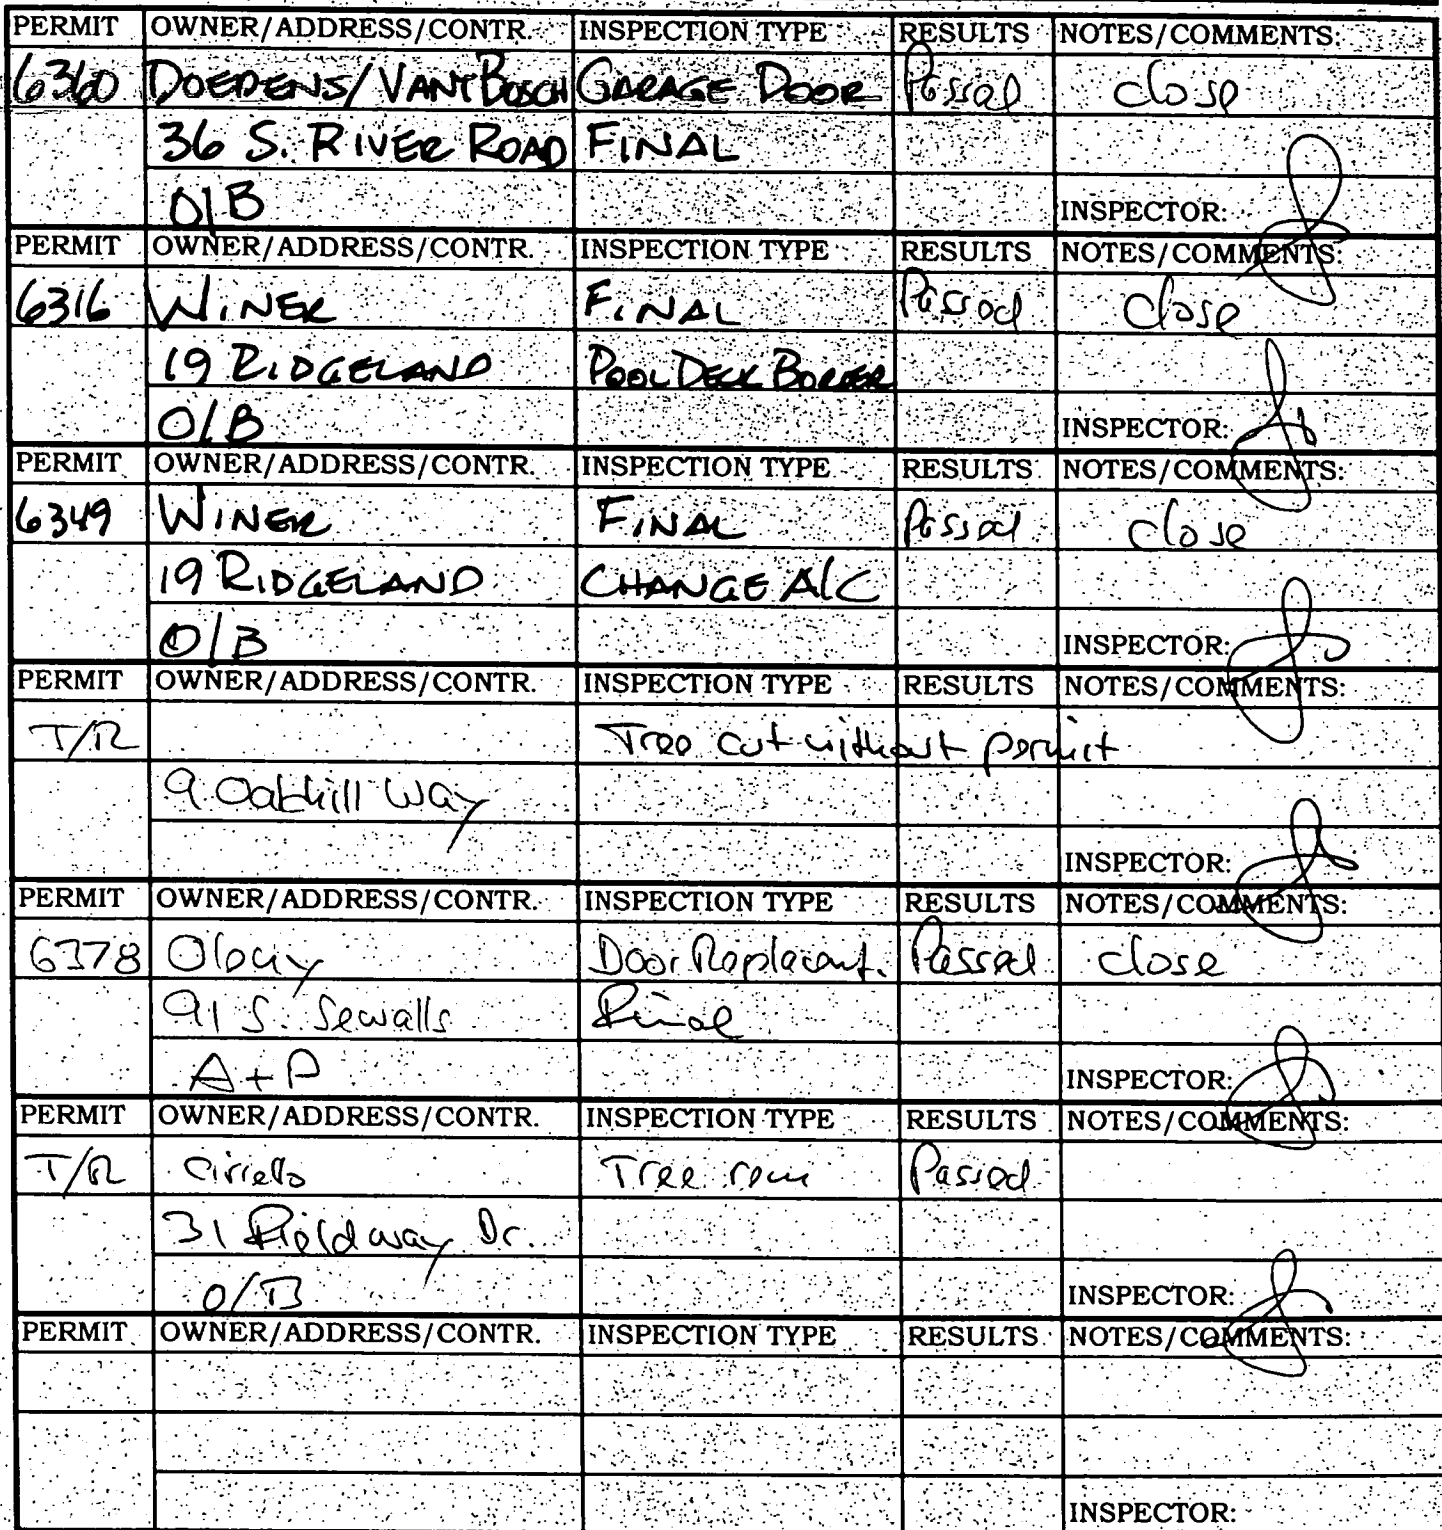 PERMIT OWNER/ADDRESS/CONTR. INSPECTION TYPE RESULTS NOTES/COMMENTS:
6360 DOEDENS/VANTBOSCH GARAGE DOOR Passed close
36 S. RIVER ROAD FINAL
O/B INSPECTOR:
PERMIT OWNER/ADDRESS/CONTR. INSPECTION TYPE RESULTS NOTES/COMMENTS:
6316 WINER FINAL Passed close
19 RIDGELAND POOL DECK BORDER
O/B INSPECTOR:
PERMIT OWNER/ADDRESS/CONTR. INSPECTION TYPE RESULTS NOTES/COMMENTS:
6349 WINER FINAL Passed close
19 RIDGELAND CHANGE A/C
O/B INSPECTOR:
PERMIT OWNER/ADDRESS/CONTR. INSPECTION TYPE RESULTS NOTES/COMMENTS:
T/R Tree cut without permit
9 Oakhill Way
INSPECTOR:
PERMIT OWNER/ADDRESS/CONTR. INSPECTION TYPE RESULTS NOTES/COMMENTS:
6378 Door Replacemt. Passed close
91 S. Sewalls Final
A+P INSPECTOR:
PERMIT OWNER/ADDRESS/CONTR. INSPECTION TYPE RESULTS NOTES/COMMENTS:
T/R Ciriello Tree rem Passed
31 Fieldway Dr.
O/B INSPECTOR:
PERMIT OWNER/ADDRESS/CONTR. INSPECTION TYPE RESULTS NOTES/COMMENTS:
INSPECTOR: